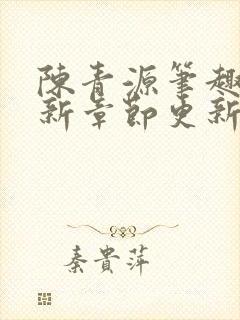 陳青源筆趣
新章節更新
秦貴萍